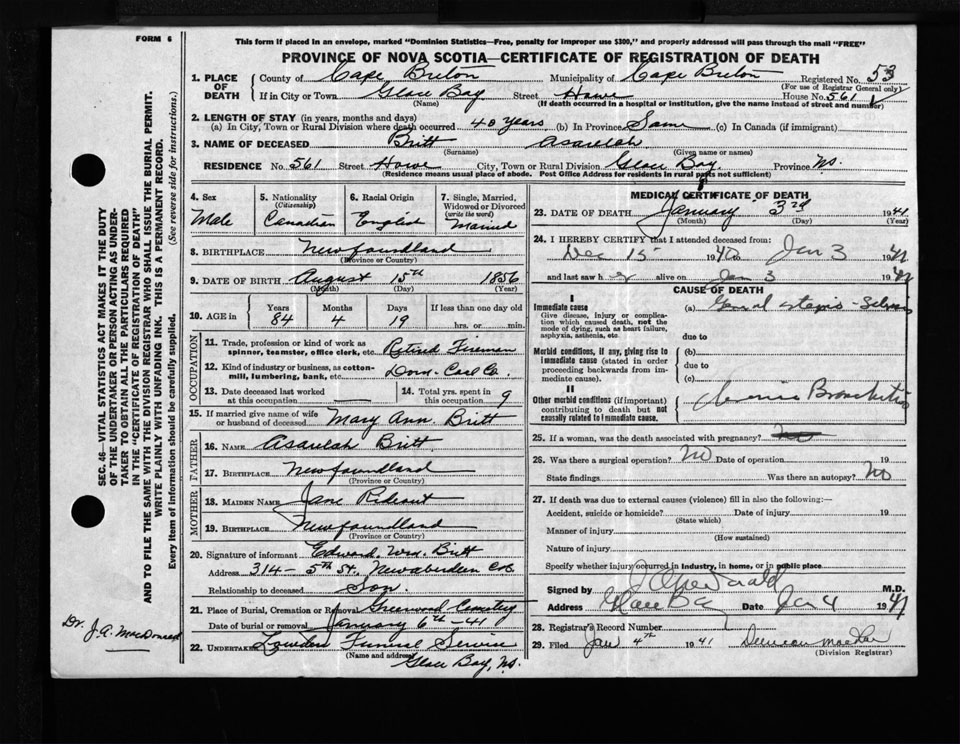 FORM 6
This form if placed in an envelope, marked "Dominion Statistics—Free, penalty for improper use $300," and properly addressed will pass through the mail "FREE"
PROVINCE OF NOVA SCOTIA—CERTIFICATE OF REGISTRATION OF DEATH
1. PLACE OF DEATH County of Cape Breton Municipality of Cape Breton Registered No. 53
(For use of Registrar General only)
If in City or Town Glace Bay Street Howe House No. 561
(Name) (If death occurred in a hospital or institution, give the name instead of street and number)
2. LENGTH OF STAY (in years, months and days)
(a) In City, Town or Rural Division where death occurred 40 years (b) In Province Same (c) In Canada (if immigrant)
3. NAME OF DECEASED Britt Asaulah
(Surname) (Given name or names)
RESIDENCE No. 561 Street Howe City, Town or Rural Division Glace Bay Province N.S.
(Residence means usual place of abode. Post Office Address for residents in rural parts not sufficient)
4. Sex Male
5. Nationality (Citizenship) Canadian
6. Racial Origin English
7. Single, Married, Widowed or Divorced (write the word) Married
8. BIRTHPLACE Newfoundland
(Province or Country)
9. DATE OF BIRTH August 15th 1856
(Month) (Day) (Year)
10. AGE in Years 84 Months 4 Days 19 If less than one day old
hrs. or min.
OCCUPATION
11. Trade, profession or kind of work as spinner, teamster, office clerk, etc. Retired Fireman
12. Kind of industry or business, as cotton-mill, lumbering, bank, etc. Dom. Coal Co.
13. Date deceased last worked at this occupation
14. Total yrs. spent in this occupation 9
15. If married give name of wife or husband of deceased Mary Ann Britt
FATHER
16. NAME Asaulah Britt
17. BIRTHPLACE Newfoundland
(Province or Country)
MOTHER
18. MAIDEN NAME Jane Rideout
19. BIRTHPLACE Newfoundland
(Province or Country)
20. Signature of informant Edward Wm. Britt
Address 314 - 5th St. New Aberdeen C.B.
Relationship to deceased Son
21. Place of Burial, Cremation or Removal Greenwood Cemetery
Date of burial or removal January 6th - 41
22. UNDERTAKER Funeral Service
(Name and address)
Glace Bay, N.S.
MEDICAL CERTIFICATE OF DEATH
23. DATE OF DEATH January 3rd 1941
(Month) (Day) (Year)
24. I HEREBY CERTIFY that I attended deceased from:
Dec 15 1940 to Jan 3 1941
and last saw h alive on Jan 3 1941
CAUSE OF DEATH
I
Immediate cause
Give disease, injury or complication which caused death, not the mode of dying, such as heart failure, asphyxia, asthenia, etc.
(a)
due to
Morbid conditions, if any, giving rise to immediate cause (stated in order proceeding backwards from immediate cause).
(b)
due to
(c)
II
Other morbid conditions (if important) contributing to death but not causally related to immediate cause.
Chronic Bronchitis
25. If a woman, was the death associated with pregnancy?
26. Was there a surgical operation? No Date of operation 19
State findings Was there an autopsy? No
27. If death was due to external causes (violence) fill in also the following:—
Accident, suicide or homicide? Date of injury 19
(State which)
Manner of injury
(How sustained)
Nature of injury
Specify whether injury occurred in industry, in home, or in public place
Signed by M.D.
Address Glace Bay Date Jan 4 1941
28. Registrar's Record Number
29. Filed Jan 4th 1941 Duncan
(Division Registrar)
SEC. 46—VITAL STATISTICS ACT MAKES IT THE DUTY OF THE UNDERTAKER OR PERSON ACTING AS UNDERTAKER TO OBTAIN ALL THE PARTICULARS REQUIRED IN THE "CERTIFICATE OF REGISTRATION OF DEATH"
AND TO FILE THE SAME WITH THE DIVISION REGISTRAR WHO SHALL ISSUE THE BURIAL PERMIT.
WRITE PLAINLY WITH UNFADING INK. THIS IS A PERMANENT RECORD.
Every item of information should be carefully supplied. (See reverse side for instructions.)
Dr. J.A. MacDonald